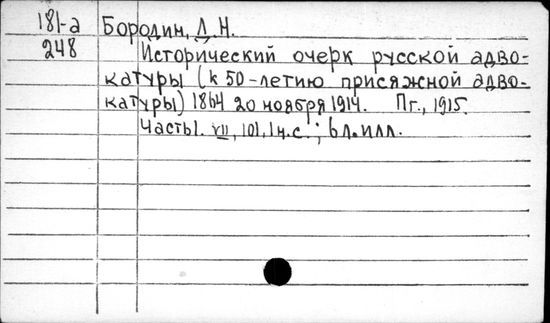 181-а Бородин, Д. Н.
248 Исторический очерк русской адво-
катуры (к 50-летию присяжной адво-
катуры) 1864 20 ноября 1914. Пг., 1915.
Часть I. VII, 101, 1 н.с.; 6 л. илл.